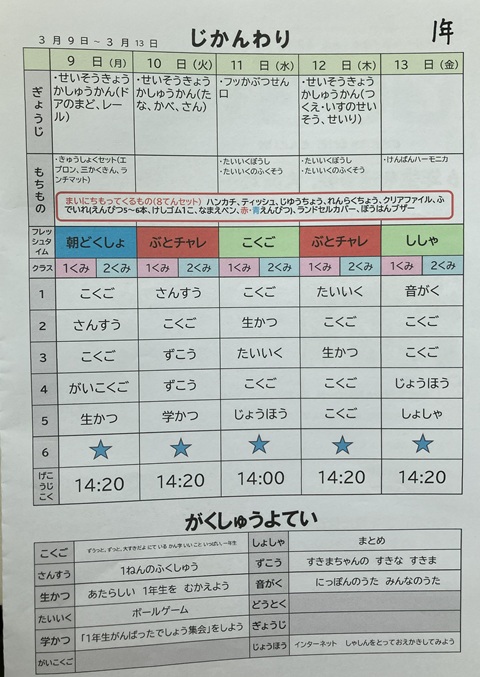 3月9日～3月13日 じかんわり 1年
9 日(月) 10 日(火) 11 日(水) 12 日(木) 13 日(金)
ぎょうじ
・せいそうきょうかしゅうかん(ドアのまど、レール)
・せいそうきょうかしゅうかん(たな、かべ、さん)
・フッかぶつせん口
・せいそうきょうかしゅうかん(つくえ・いすのせいそう、せいり)
もちもの
・きゅうしょくセット(エプロン、三かくきん、ランチマット)
・たいいくぼうし
・たいいくのふくそう
・たいいくぼうし
・たいいくのふくそう
・けんばんハーモニカ
まいにちもってくるもの(8てんセット) ハンカチ、ティッシュ、じゆうちょう、れんらくちょう、クリアファイル、ふ
でいれ(えんぴつ5～6本、けしゴム1こ、なまえペン、赤・青えんぴつ)、ランドセルカバー、ぼうはんブザー
フレッシュタイム 朝どくしょ ぷとチャレ こくご ぷとチャレ ししゃ
クラス 1くみ 2くみ 1くみ 2くみ 1くみ 2くみ 1くみ 2くみ 1くみ 2くみ
1 こくご さんすう こくご たいいく 音がく
2 さんすう こくご 生かつ こくご こくご
3 こくご ずこう たいいく 生かつ こくご
4 がいこくご ずこう こくご こくご じょうほう
5 生かつ 学かつ じょうほう こくご しょしゃ
6
げこうじこく 14:20 14:20 14:00 14:20 14:20
がくしゅうよてい
こくご ずうっと、ずっと、大すきだよ にて いる かん字 いい こと いっぱい、一年生 しょしゃ まとめ
さんすう 1ねんのふくしゅう ずこう すきまちゃんの すきな すきま
生かつ あたらしい 1年生を むかえよう 音がく にっぽんのうた みんなのうた
たいいく ボールゲーム どうとく
学かつ 「1年生がんばったでしょう集会」をしよう ぎょうじ
がいこくご じょうほう インターネット しゃしんをとっておえかきしてみよう